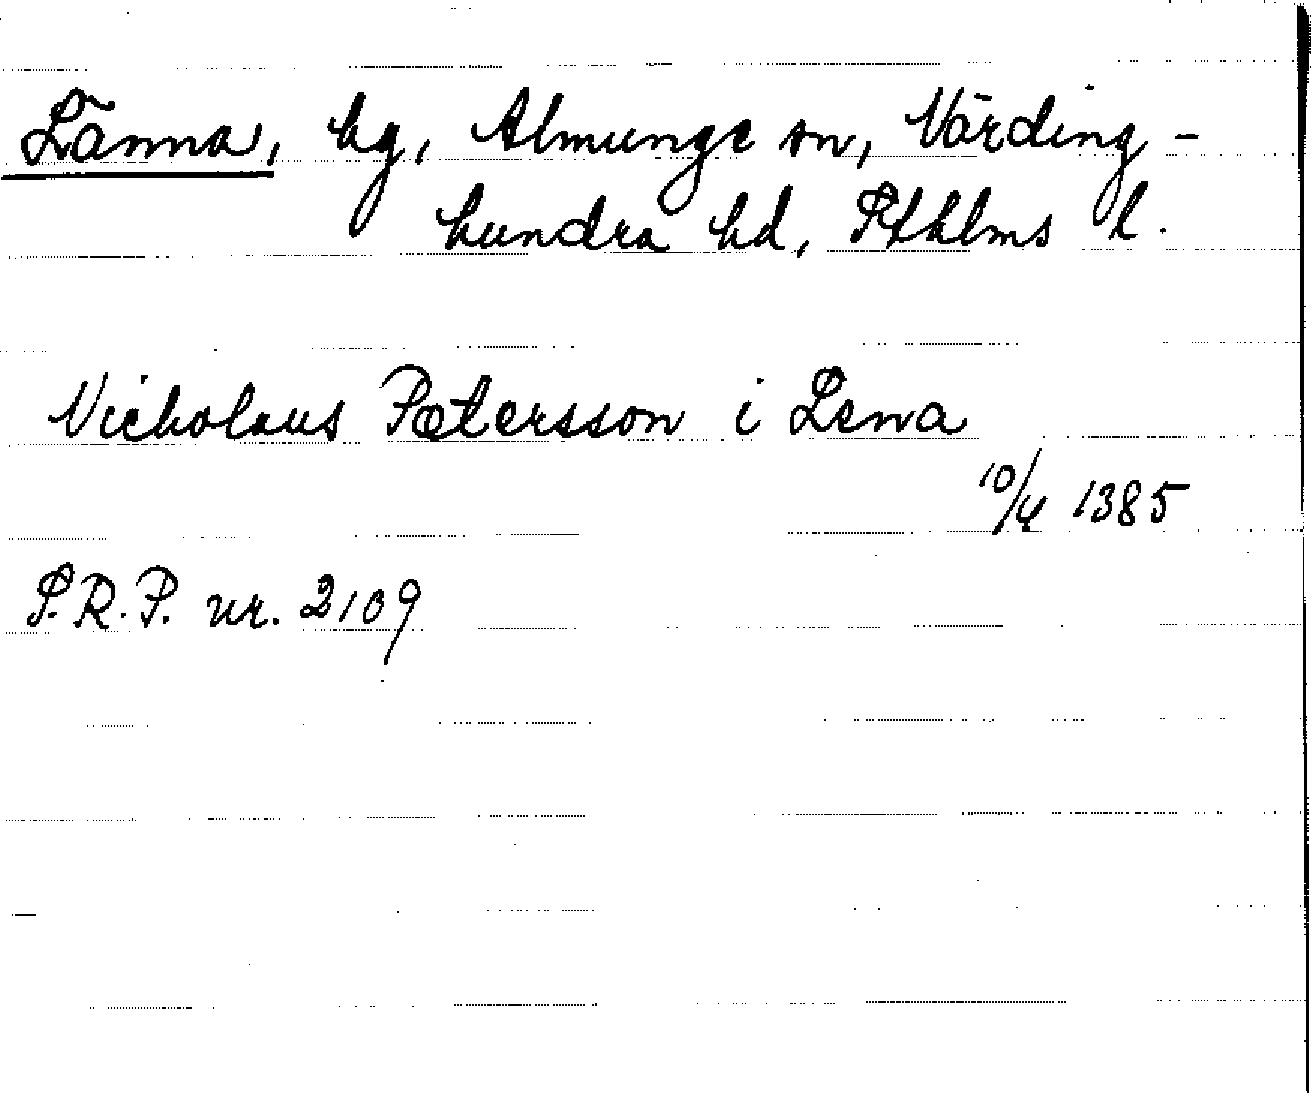 Länna, hg, Almunge sn, Närding-
hundra hd, Sthlms l.
Nicholaus Pætersson i Lena
10/4 1385
S.R.P. nr. 2109